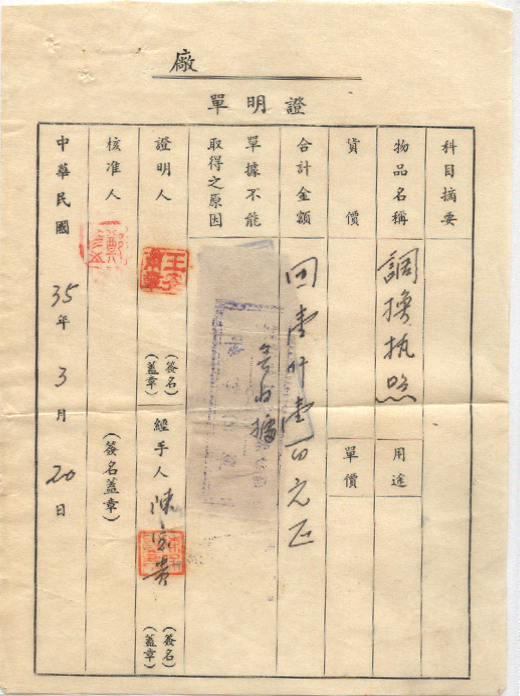 廠
單明證
科目摘要
物品名稱
調換執照
用途
貨價
單價
合計金額
壹仟壹百元正
單據不能
取得之原因
無收據
證明人
(簽名)
(蓋章)
經手人
陳
貴
(簽名)
(蓋章)
核准人
(簽名蓋章)
中華民國35年3月20日